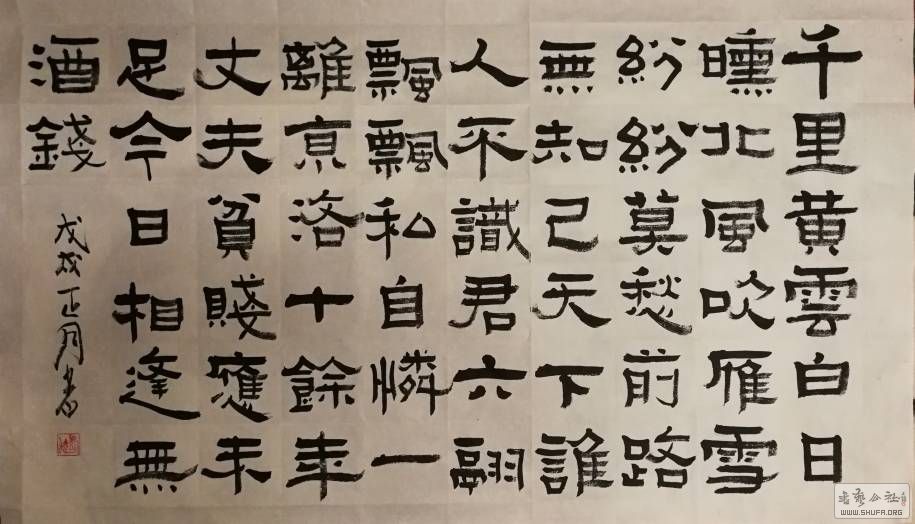 千里黃雲白日
曛北風吹雁雪
紛紛莫愁前路
無知己天下誰
人不識君六翮
飄飄私自憐一
離京洛十餘年
丈夫貧賤應未
足今日相逢無
酒錢
戊戌正月
WWW.SHUFA.ORG